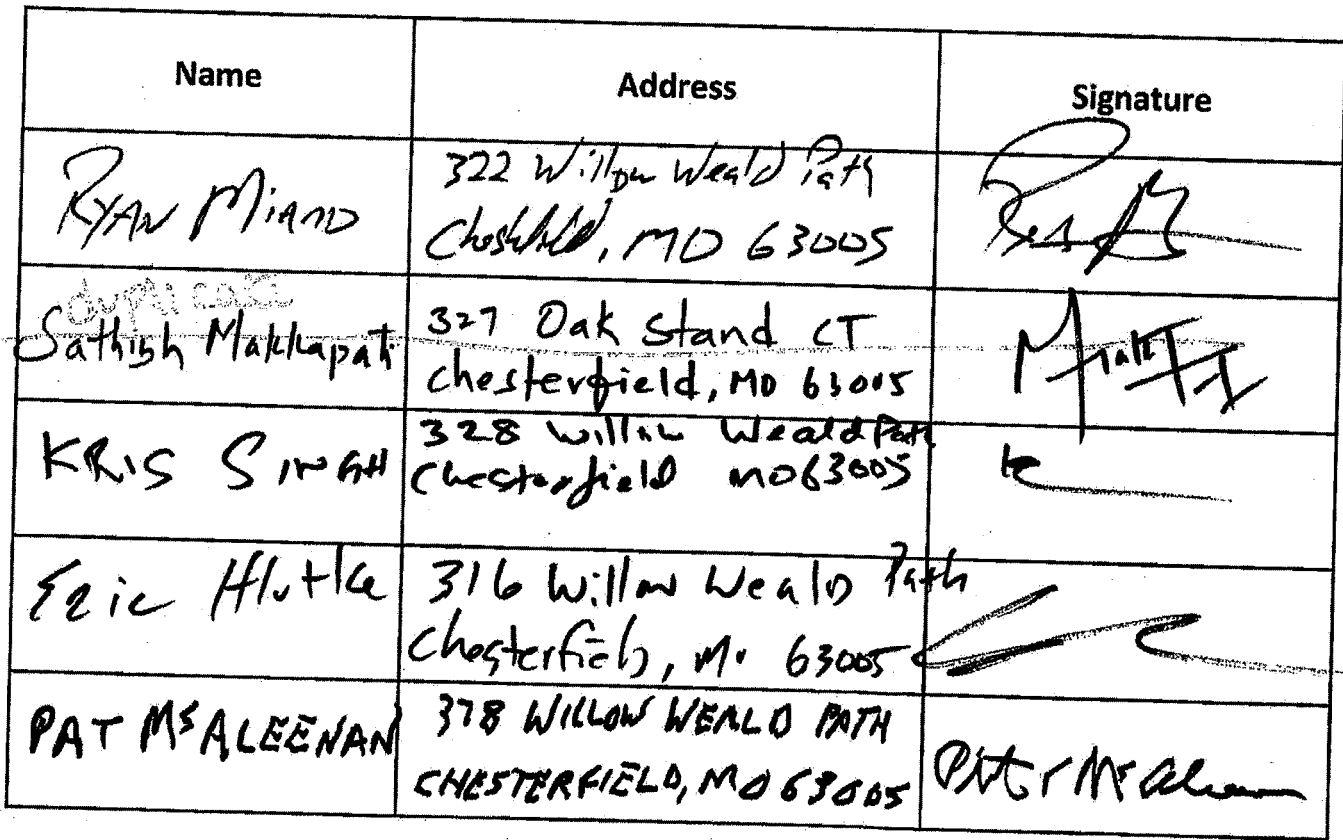 Name Address Signature
RYAN MIANO
322 Willow Weald Path
Chesterfield, MO 63005
duplicate
Sathish Makkapati
327 Oak Stand CT
Chesterfield, MO 63005
KRIS SINGH
328 Willow Weald Path
Chesterfield MO 63005
Eric Hlutke
316 Willow Weald Path
Chesterfield, Mo 63005
PAT McALEENAN
378 WILLOW WEALD PATH
CHESTERFIELD, MO 63005